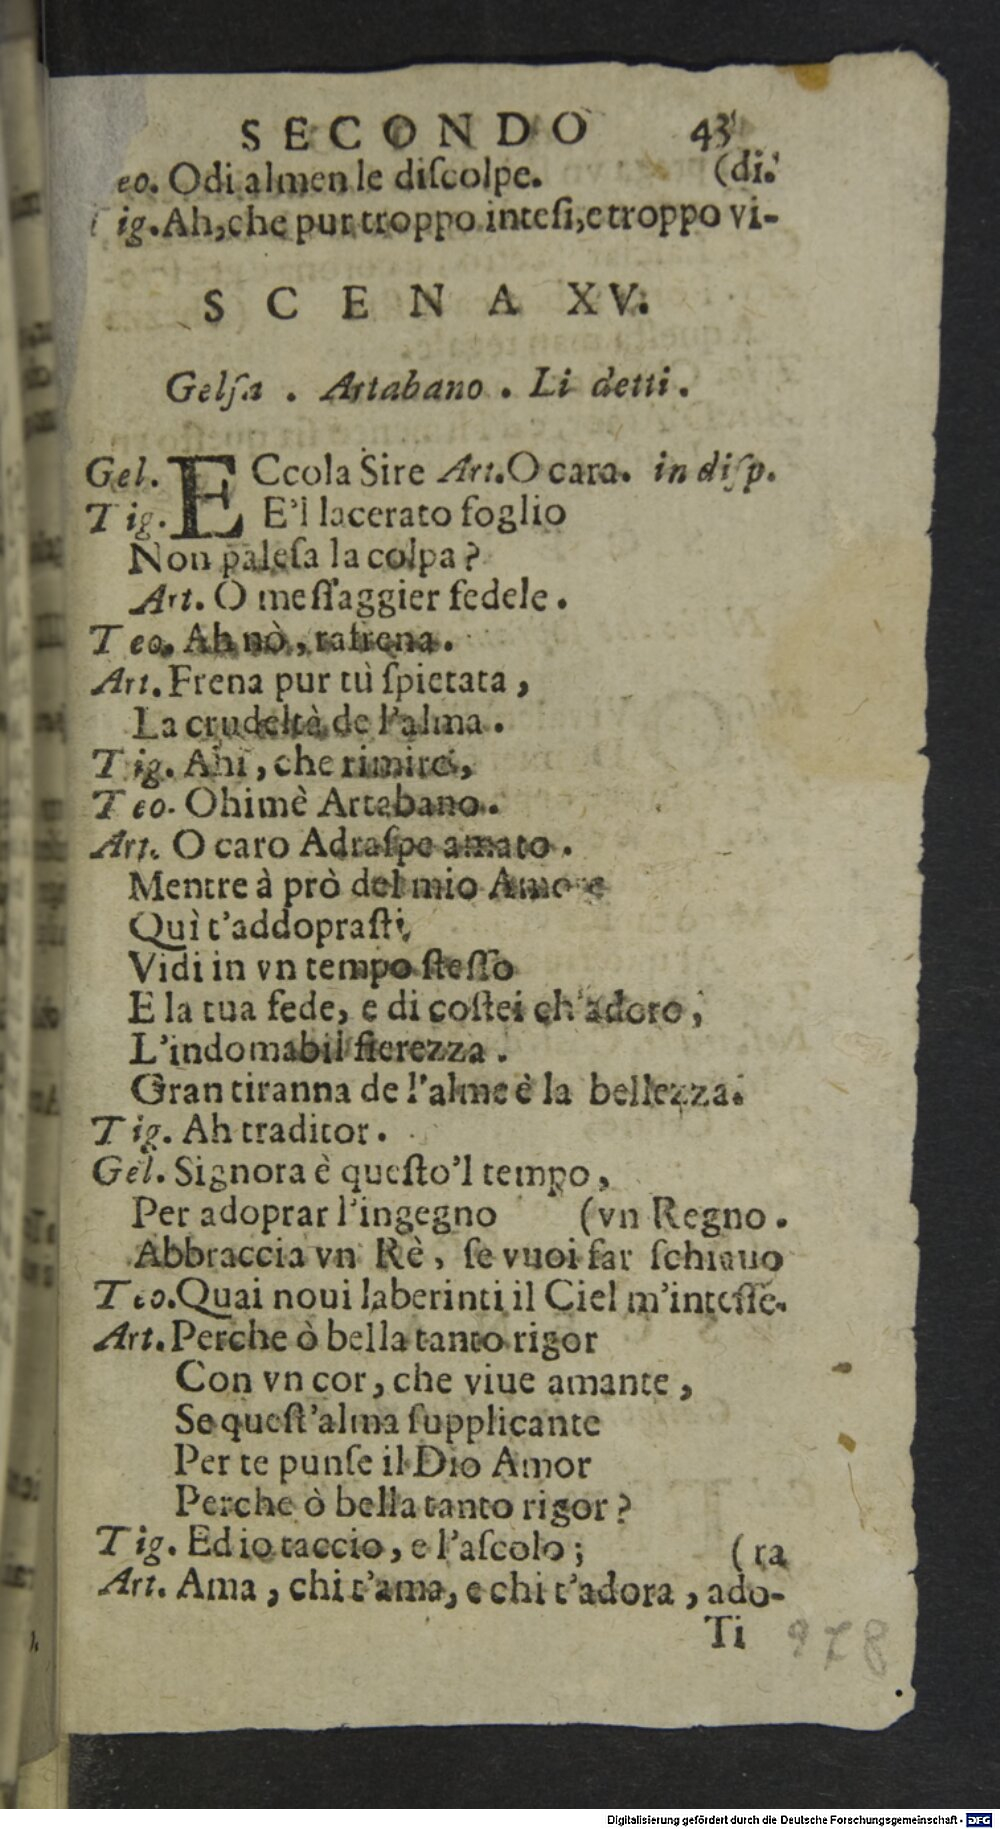 SECONDO 43
eo. Odi almen le diſcolpe. (di.
ig. Ah, che pur troppo inteſi, e troppo vi-
SCENA XV.
Gelſa. Artabano. Li detti.
Gel. ECcola Sire Art. O cara. in diſp.
Tig. E'l lacerato foglio
Non paleſa la colpa?
Art. O meſſaggier fedele.
Teo. Ah nò, rafrena.
Art. Frena pur tù ſpietata,
La crudeltà de l'alma.
Tig. Ahi, che rimiro,
Teo. Ohimè Artabano.
Art. O caro Adraſpe amato.
Mentre à prò del mio Amore
Quì t'addopraſti,
Vidi in vn tempo ſteſſo
E la tua fede, e di coſtei ch'adoro,
L'indomabil fierezza.
Gran tiranna de l'alme è la bellezza.
Tig. Ah traditor.
Gel. Signora è queſto'l tempo,
Per adoprar l'ingegno (vn Regno.
Abbraccia vn Rè, ſe vuoi far ſchiauo
Teo. Quai noui laberinti il Ciel m'inteſſe.
Art. Perche ò bella tanto rigor
Con vn cor, che viue amante,
Se queſt'alma ſupplicante
Per te punſe il Dio Amor
Perche ò bella tanto rigor?
Tig. Ed io taccio, e l'aſcolo; (ra
Art. Ama, chi t'ama, e chi t'adora, ado-
Ti 978
Digitalisierung gefördert durch die Deutsche Forschungsgemeinschaft - DFG